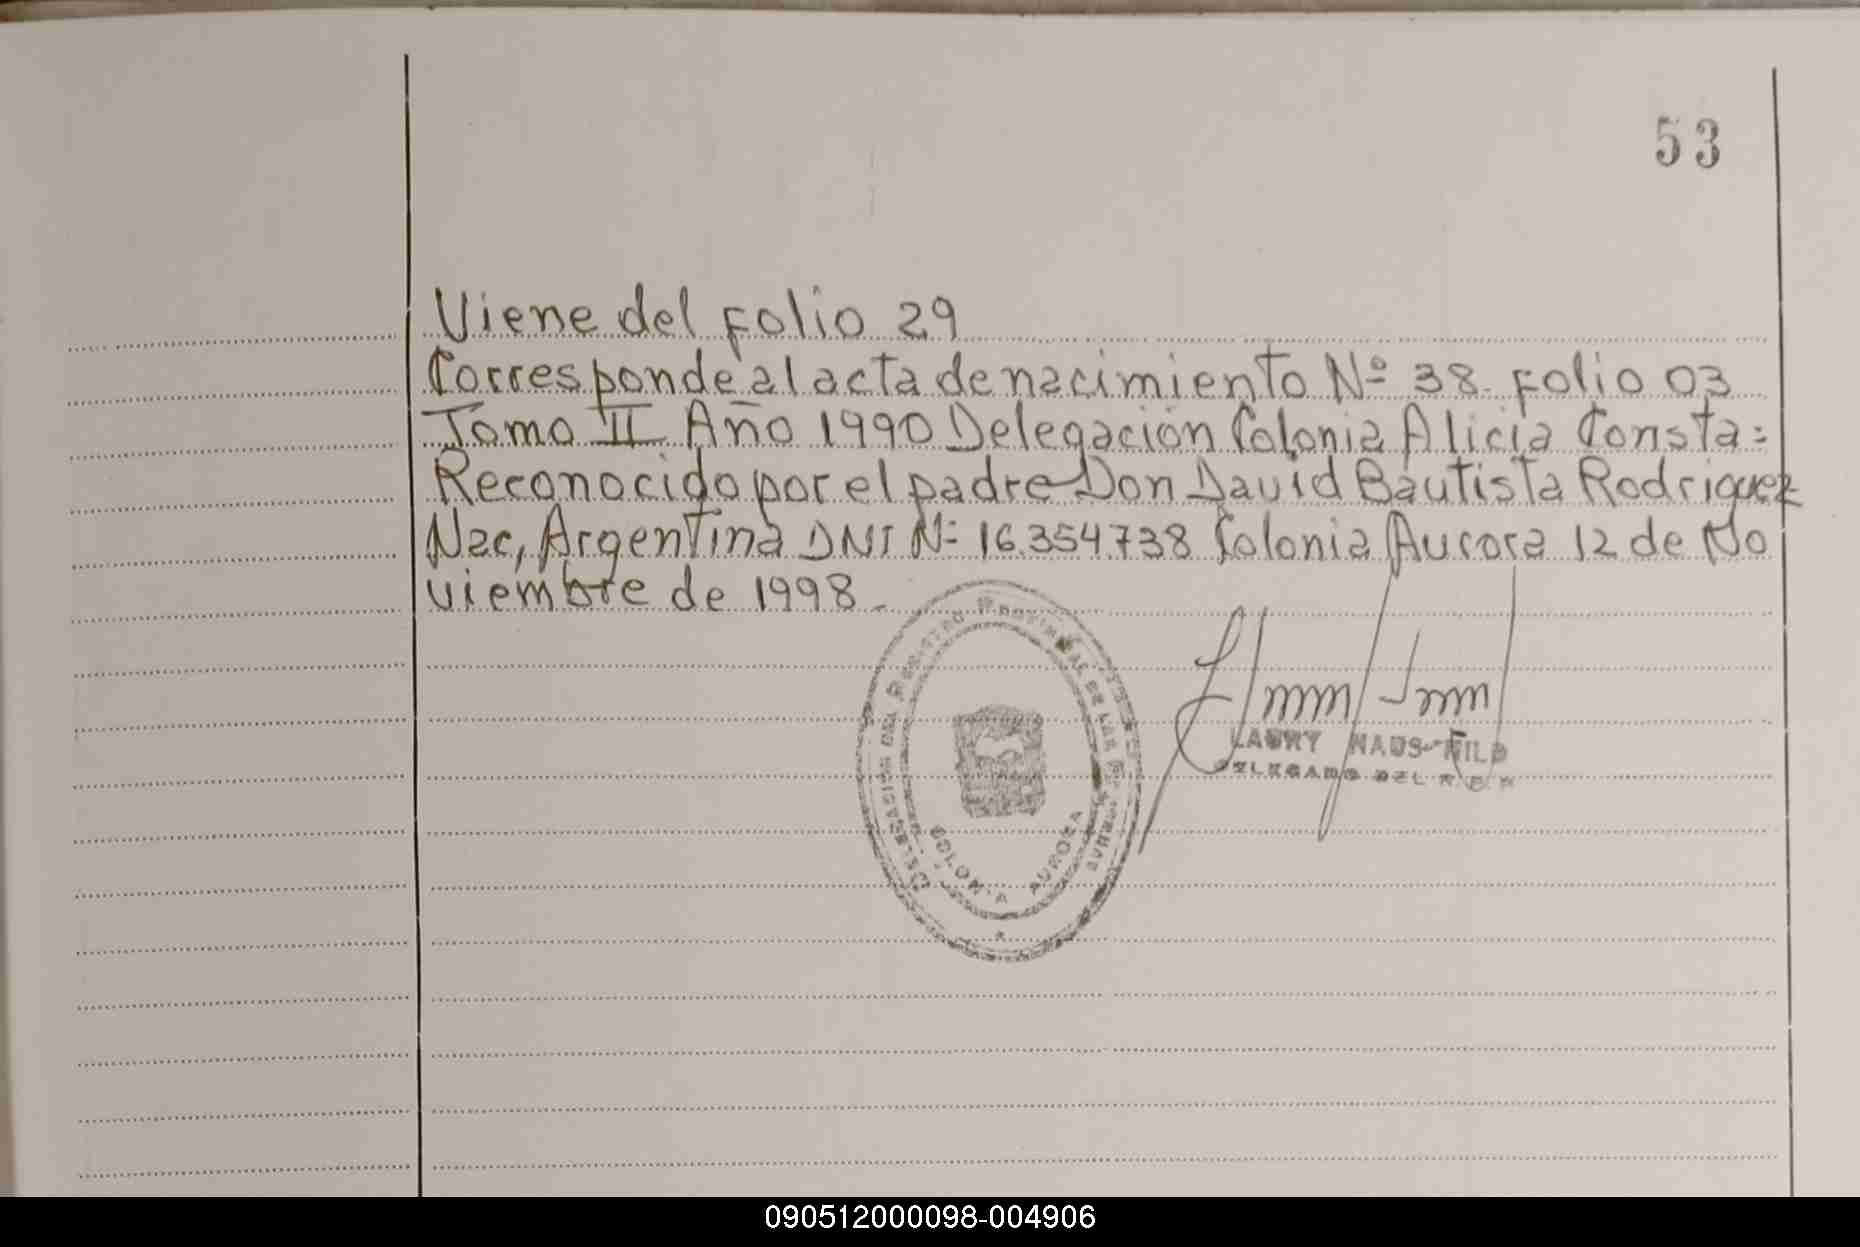 53
Viene del Folio 29
Corresponde al acta de nacimiento Nº 38. Folio 03
Tomo II Año 1990 Delegación Colonia Alicia Consta:
Reconocido por el padre Don David Bautista Rodriguez
Nac, Argentina DNI Nº 16.354.738 Colonia Aurora 12 de No
viembre de 1998.
DELEGACION DEL REGISTRO PROVINCIAL DE LAS PERSONAS
COLONIA AURORA
DELEGADO DEL R.P.P
090512000098-004906